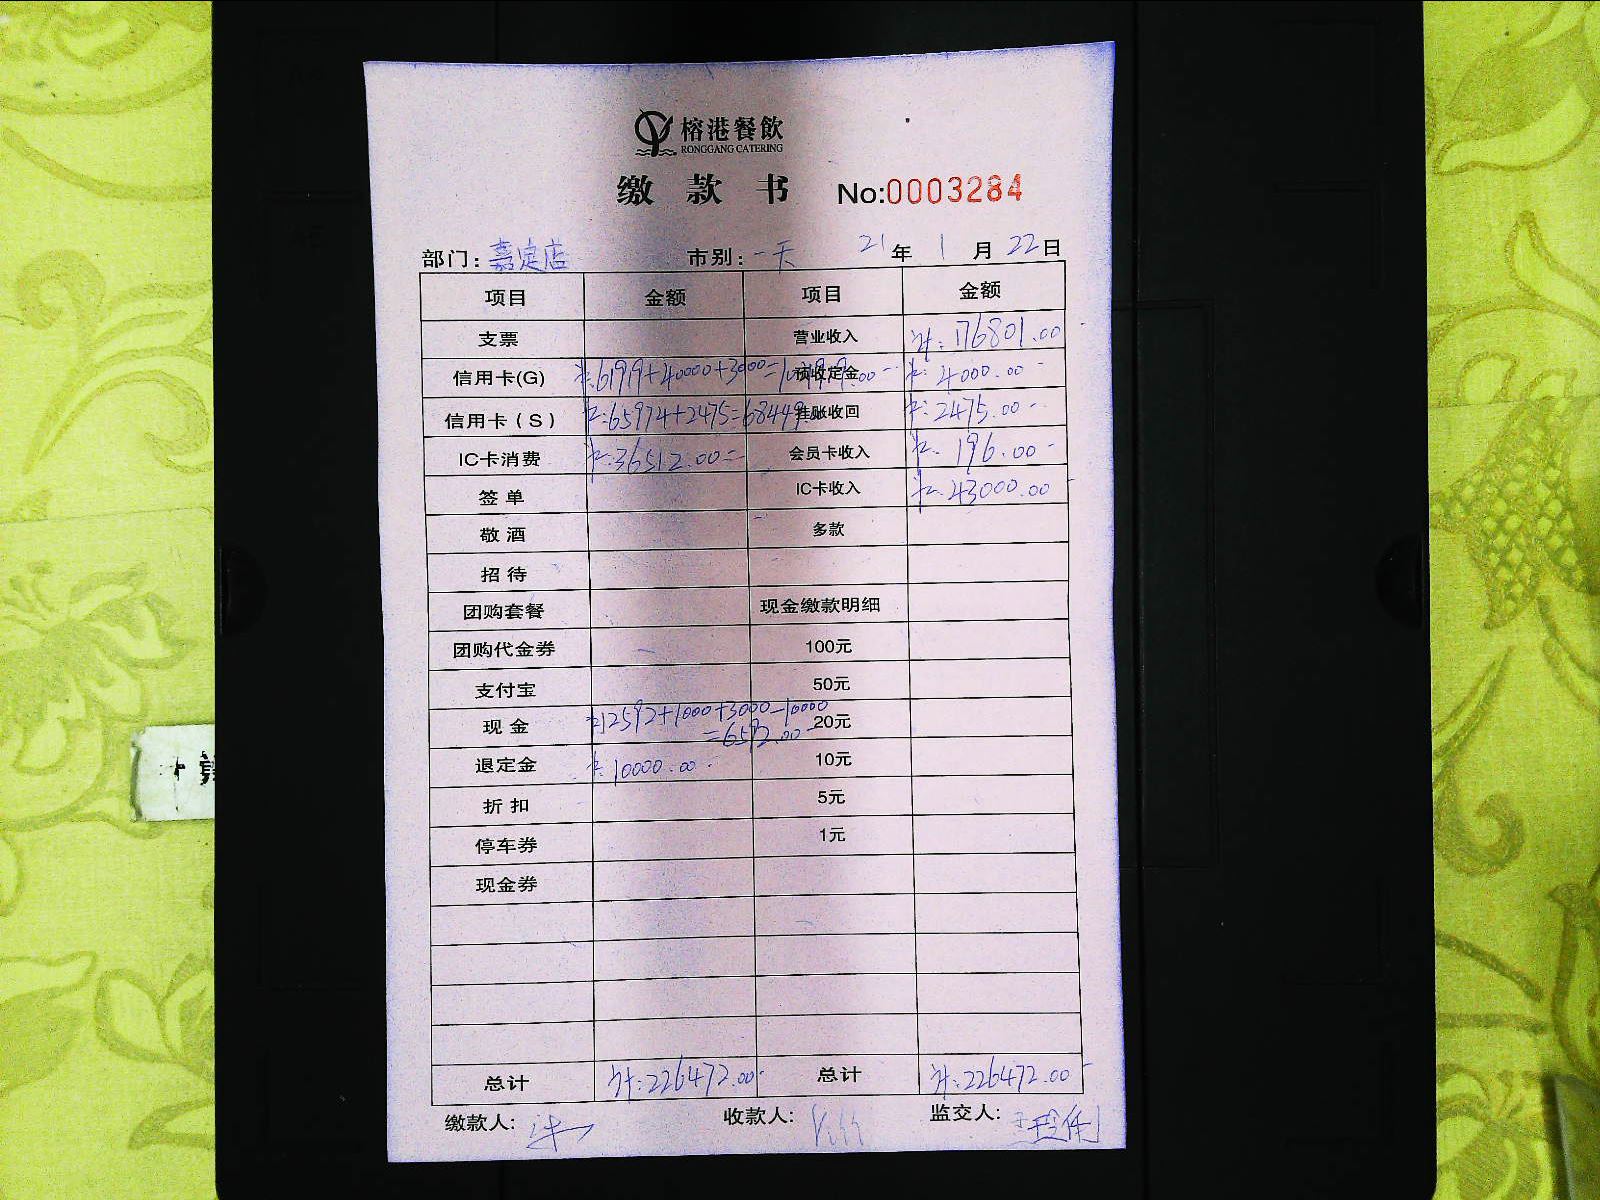 榕港餐飲
RONGGANG CATERING
缴款书 No:0003284
部门：嘉定店 市别：一天 21年1月22日
项目 金额 项目 金额
支票 营业收入 计:176801.00
信用卡(G) 计:61919+40000+3000=104919.00 预收定金 计:4000.00
信用卡(S) 计:65974+2475=68449.00 挂账收回 计:2475.00
IC卡消费 计:36512.00 会员卡收入 计:196.00
签单 IC卡收入 计:43000.00
敬酒 多款
招待
团购套餐 现金缴款明细
团购代金券 100元
支付宝 50元
现金 计:12592+1000+3000-10000=6592.00 20元
退定金 计:10000.00 10元
折扣 5元
停车券 1元
现金券
总计 计:226472.00 总计 计:226472.00
缴款人: 收款人: 监交人: